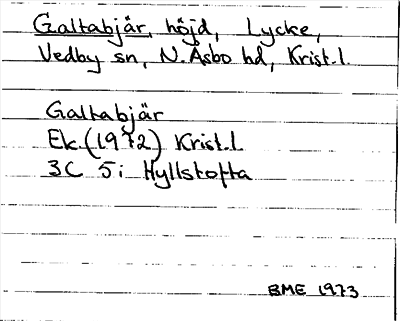 Galtabjär, höjd, Lycke,
Vedby sn, N. Åsbo hd, Krist. l.
Galtabjär
Ek. (1972) Krist. l.
3C 5i Hyllstofta
BME 1973